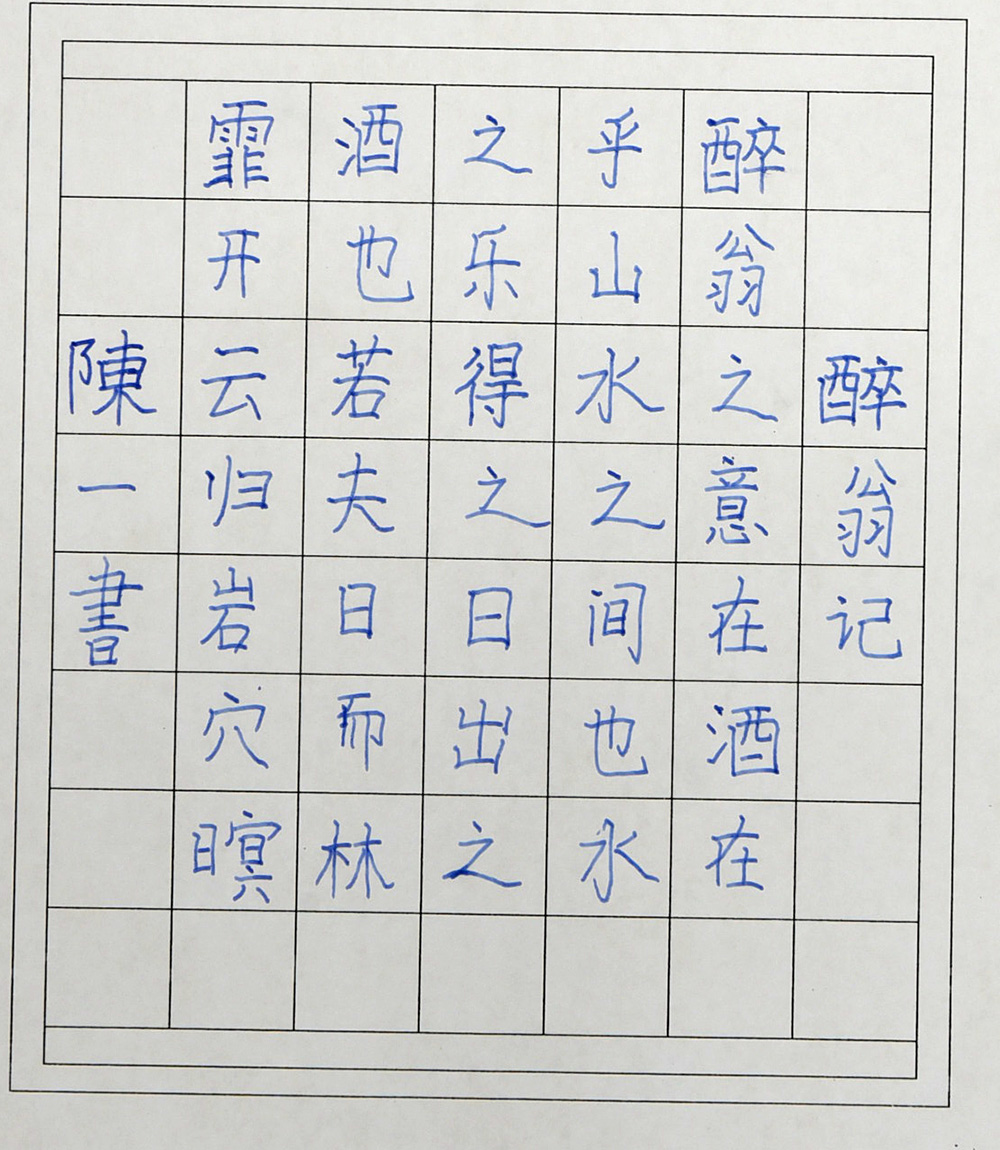 醉翁记
醉翁之意在酒在
乎山水之间也水
之乐得之曰出之
酒也若夫日而林
霏开云归岩穴暝
陳一書